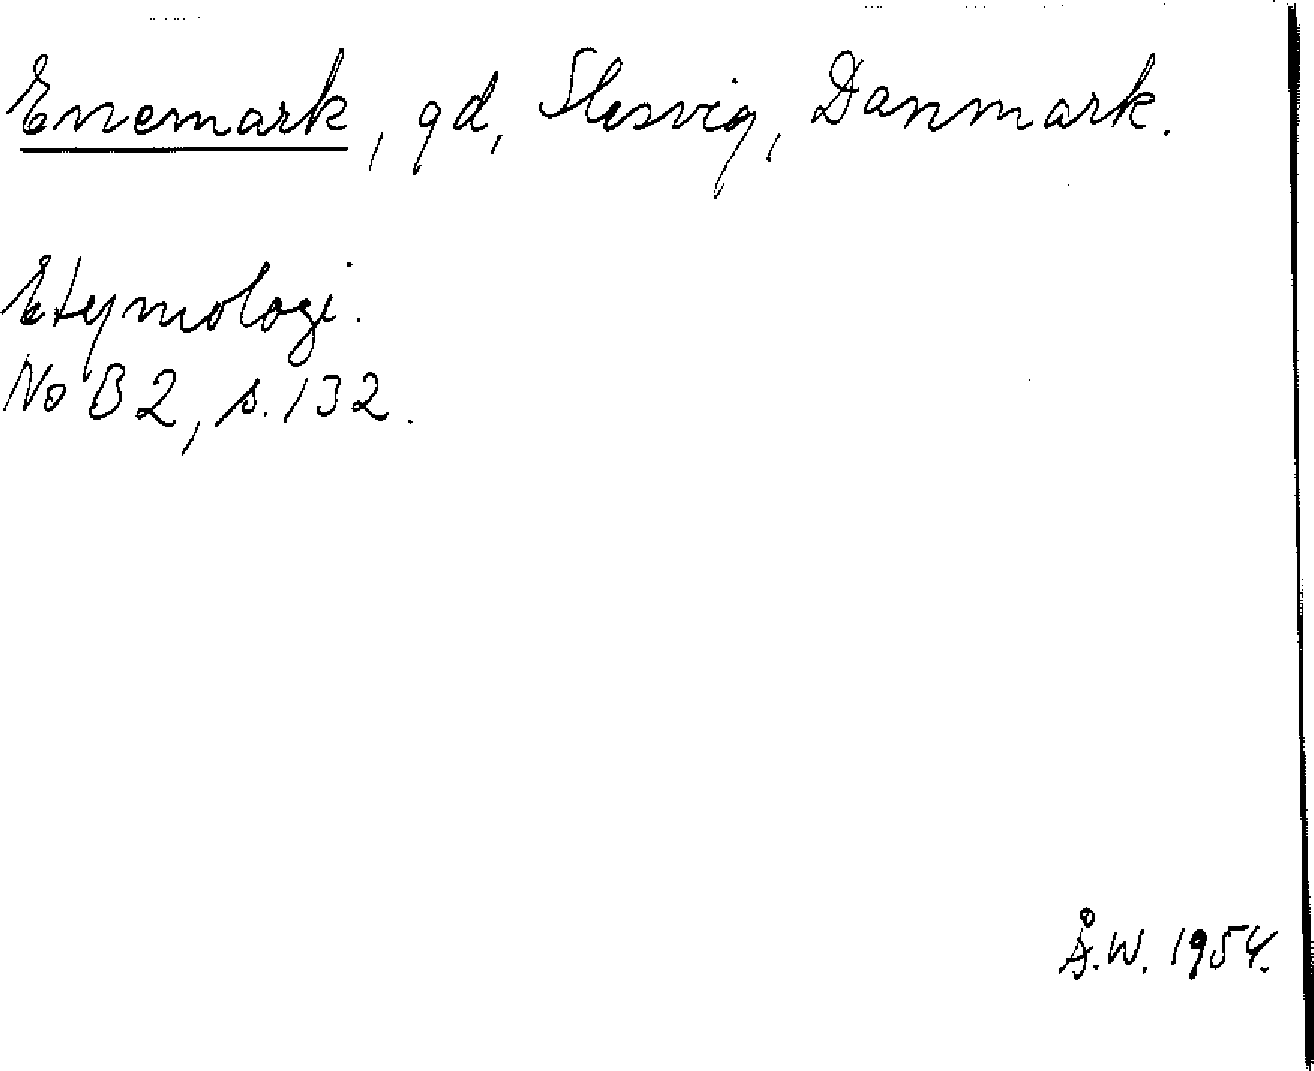 Enemark, gd, Slesvig, Danmark.
Etymologi.
NoB 2, s. 132.
Å.W. 1954.